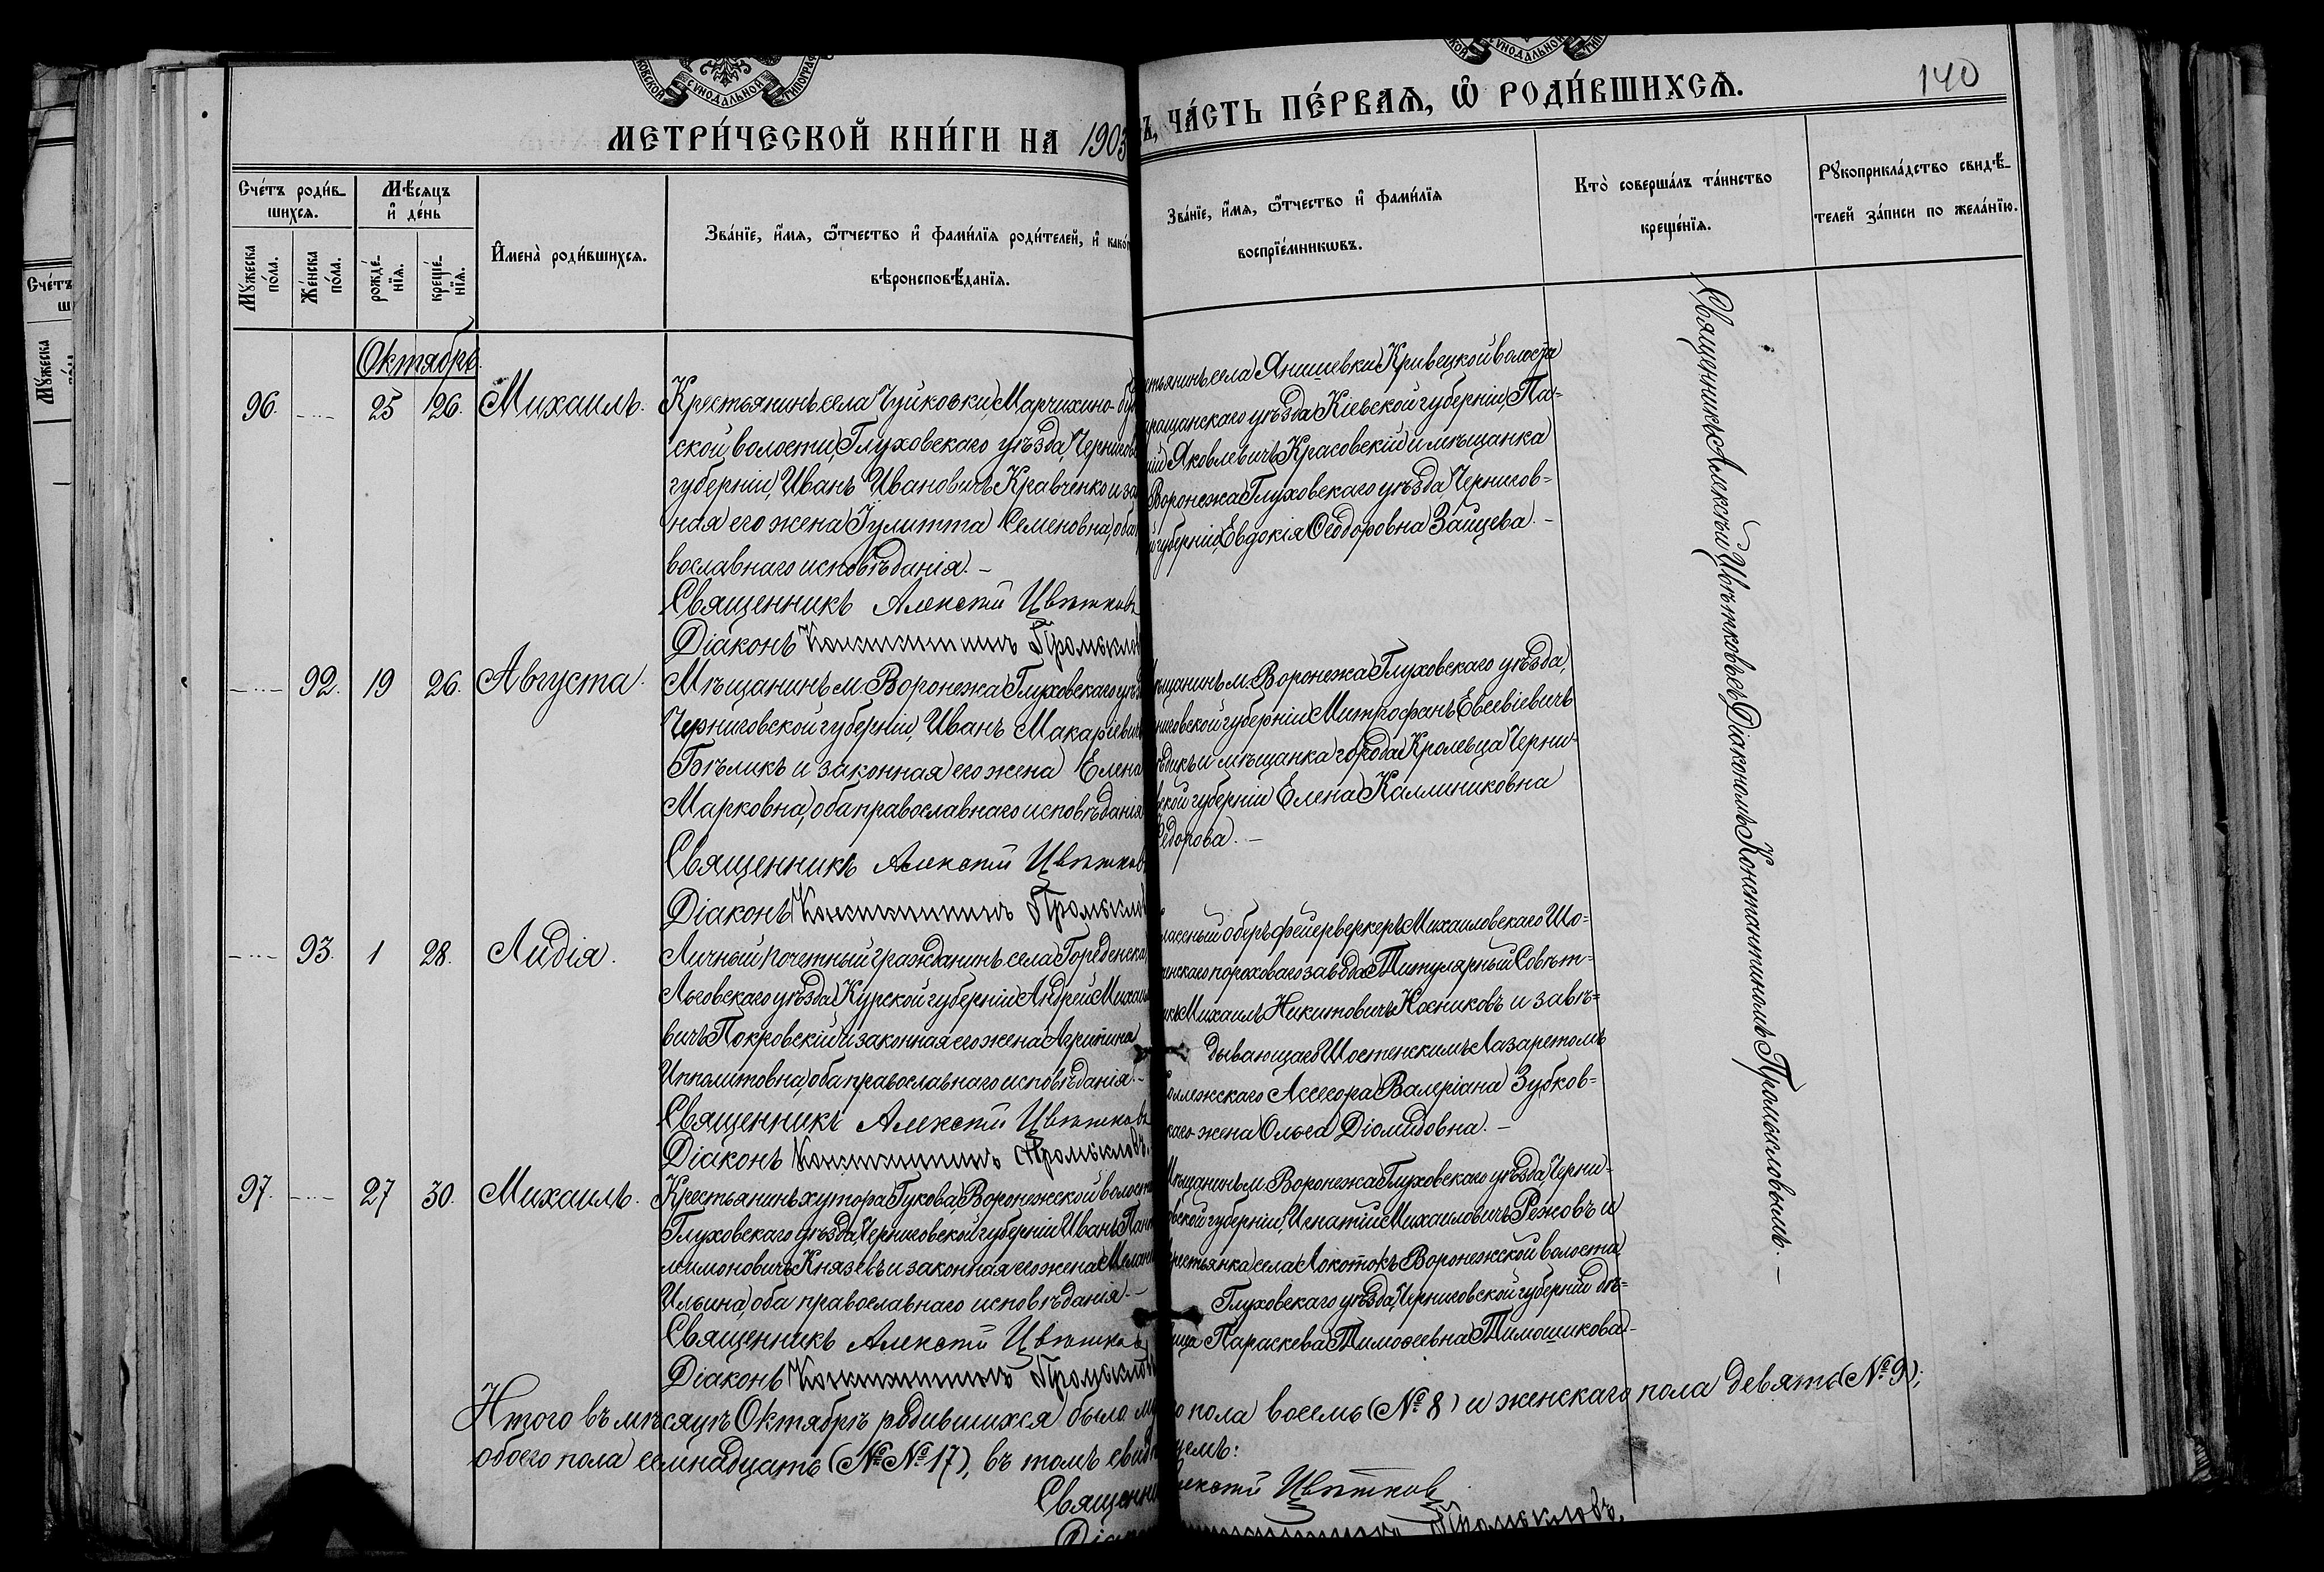 МЕТРИ́ЧЕСКОЙ КНИ́ГИ НА 1903
Ъ, ЧА́СТЬ ПЕ́РВАѦ, Ѽ РОДИ́ВШИХСѦ.
140
Сче́тъ роди́в-
шихсѧ.
Мѣ́сѧцъ
и҆ де́нь
Мꙋ́жеска
по́ла.
Же́нска
по́ла.
рожде́-
нїѧ.
креще́-
нїѧ.
И҆мена̀ роди́вшихсѧ.
Зва́нїе, и҆́мѧ, ѻ҆́тчество и҆ фами́лїѧ роди́телей, и҆ како́
вѣроисповѣ́данїѧ.
Зва́нїе, и҆́мѧ, ѻ҆́тчество и҆ фами́лїѧ
воспрїе́мникѡвъ.
Кто̀ соверша́лъ та́инство
креще́нїѧ.
Рꙋкоприкла́дство свидѣ́-
телей за́писи по жела́нїю.
Октябрь.
96. 25 26. Михаилъ.
Крестьянинъ села Чуйковки, Марчихино-бу
ской волости, Глуховскаго уѣзда, Чернигов
губерніи, Иванъ Ивановичъ Кравченко и за
ная его жена Іулитта Семеновна, оба
вославнаго исповѣданія. –
Священникъ Алексѣй Цвѣтковъ
Діаконъ Константинъ Промыслов
тьянинъ села Янишевки Кривецкой волости
ращанскаго уѣзда Кіевской губерніи, Па-
ій Яковлевичъ Красовскій и мѣщанка
Воронежа Глуховскаго уѣзда Чернигов-
й губерніи, Евдокія Ѳеодоровна Зайцева. –
Священникъ Алексѣй Цвѣтковъ съ Діакономъ Константиномъ Промысловымъ. –
92. 19 26. Августа.
Мѣщанинъ м. Воронежа Глуховскаго уѣз
Черниговской губерніи, Иванъ Макаріевич
Бѣликъ и законная его жена Елена
Марковна, оба православнаго исповѣданія
Священникъ Алексѣй Цвѣтков
Діаконъ Константинъ Промыслов
щанинъ м. Воронежа Глуховскаго уѣзда,
ниговской губерніи Митрофанъ Евсевіевичъ
дикъ и мѣщанка города Кролевца Черни-
ской губерніи Елена Каллиниковна
Ѳедорова. –
93. 1 28. Лидія.
Личный почетный гражданинъ села Гореденска
Льговскаго уѣзда Курской губерніи Андрей Михаи
вичъ Покровскій и законная его жена Агрипина
Ипполитовна, оба православнаго исповѣданія. –
Священникъ Алексѣй Цвѣтковъ
Діаконъ Константинъ Промысловъ.
лассный оберъ фейерверкеръ Михайловскаго Шо-
нскаго пороховаго завода Титулярный Совѣт-
къ Михаилъ Никитовичъ Косниковъ и завѣ-
дывающаго Шостенскимъ Лазаретомъ
оллежскаго Ассесора Валеріана Зубков-
скаго жена Ольга Діомидовна. –
97. 27 30. Михаилъ.
Крестьянинъ хутора Гукова Воронежской волости
Глуховскаго уѣзда, Черниговской губерніи Иванъ Пант
лимоновичъ Князевъ и законная его жена Мелан
Ильина, оба православнаго исповѣданія. –
Священникъ Алексѣй Цвѣтков
Діаконъ Константинъ Промыслов
Мѣщанинъ м. Воронежа Глуховскаго уѣзда, Черни-
вской губерніи, Игнатій Михаиловичъ Режовъ и
рестьянка села Локотокъ Воронежской волости
Глуховскаго уѣзда, Черниговской губерніи дѣ-
вица Параскева Тимоѳеевна Тимошикова. –
Итого въ мѣсяцѣ Октябрѣ родившихся было му
о пола восемь (№ 8) и женскаго пола девять (№ 9);
обоего пола семнадцать (№ № 17), въ томъ свид
емъ:
Священни
лексѣй Цвѣтков
Діако
Промысловъ.